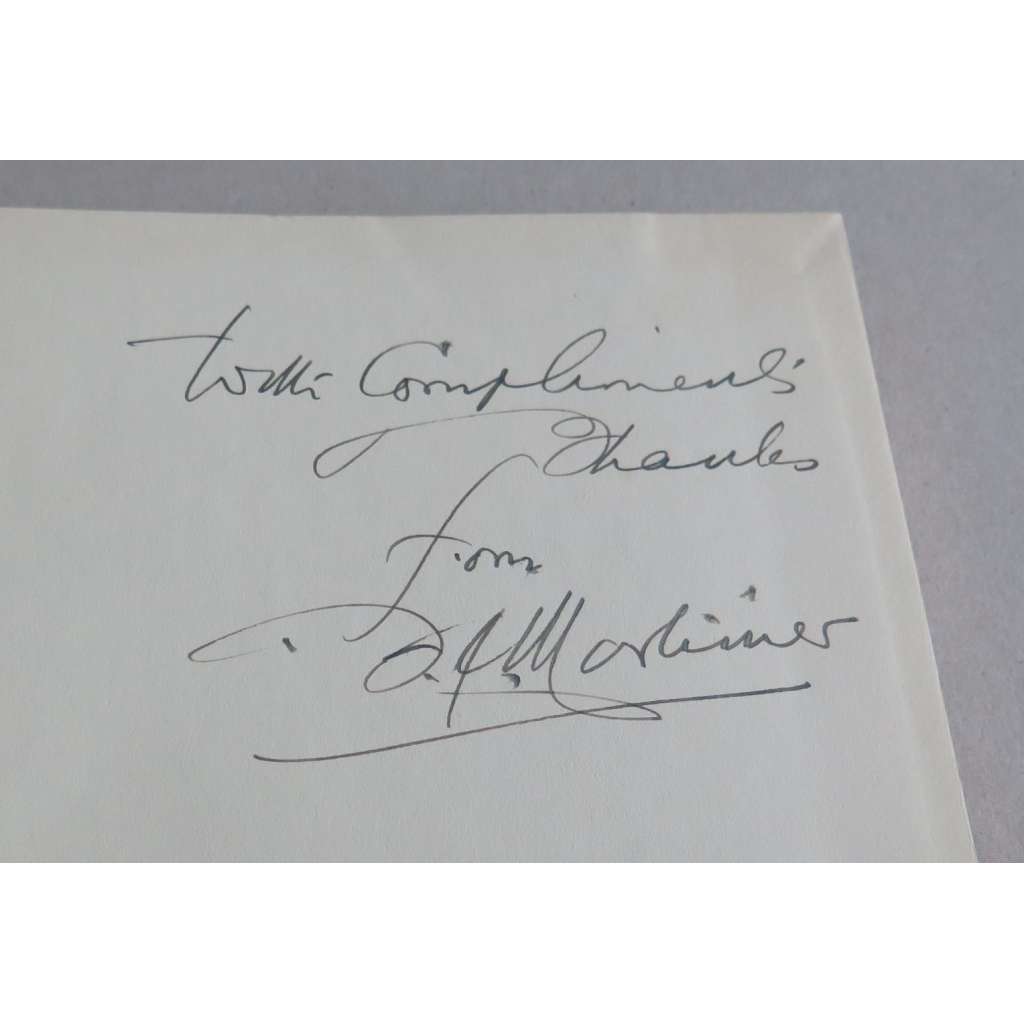 With Compliments
Thanks
from
Mortimer